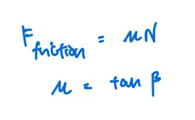 F friction = μN
μ = tan β